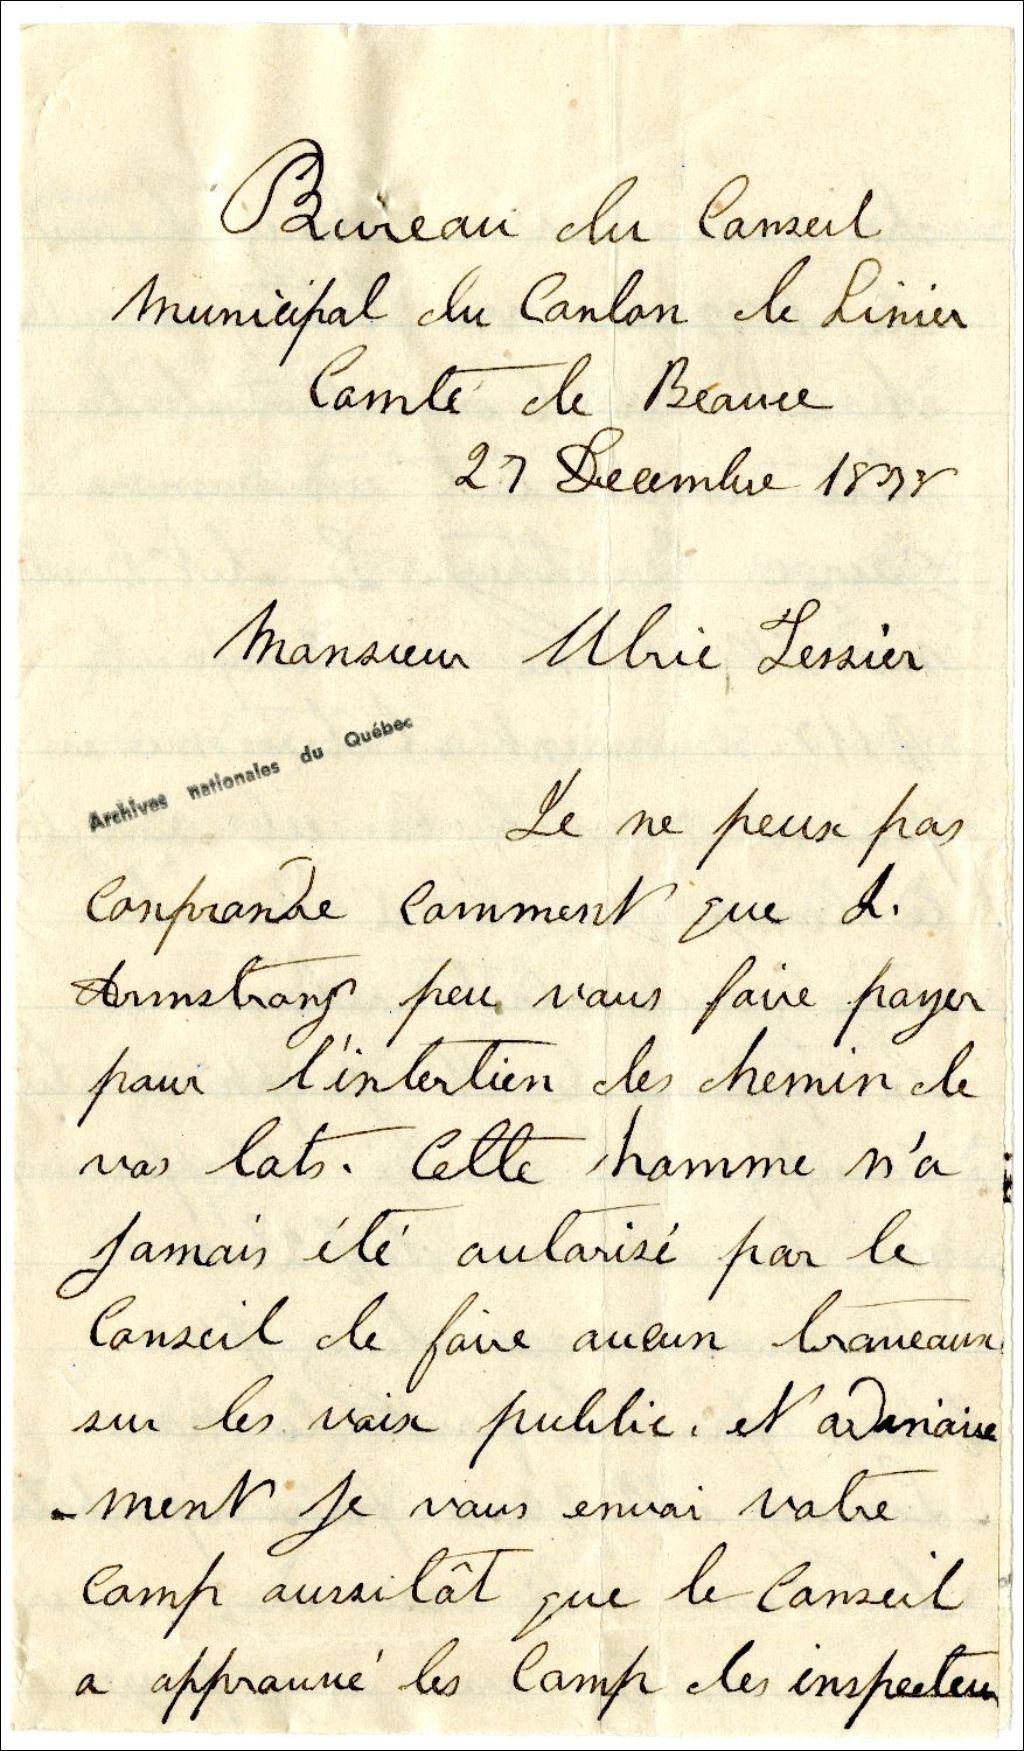 Bureau du Conseil
Municipal du Canton de Linier
Comté de Beauce
27 Decembre 1898
Monsieur Ulric Tessier
Archives nationales du Québec
Je ne peux pas
Conprandre Comment que L.
Armstrong peu vous faire payer
pour l'intertien des chemin de
vos lots. Cette homme n'a
Jamais été autorisé par le
Conseil de faire aucun traveaux
sur les voix public. et ordinaire
-ment Je vous envoi votre
Comp aussitôt que le Conseil
a approuvé les Comp des inspecteur